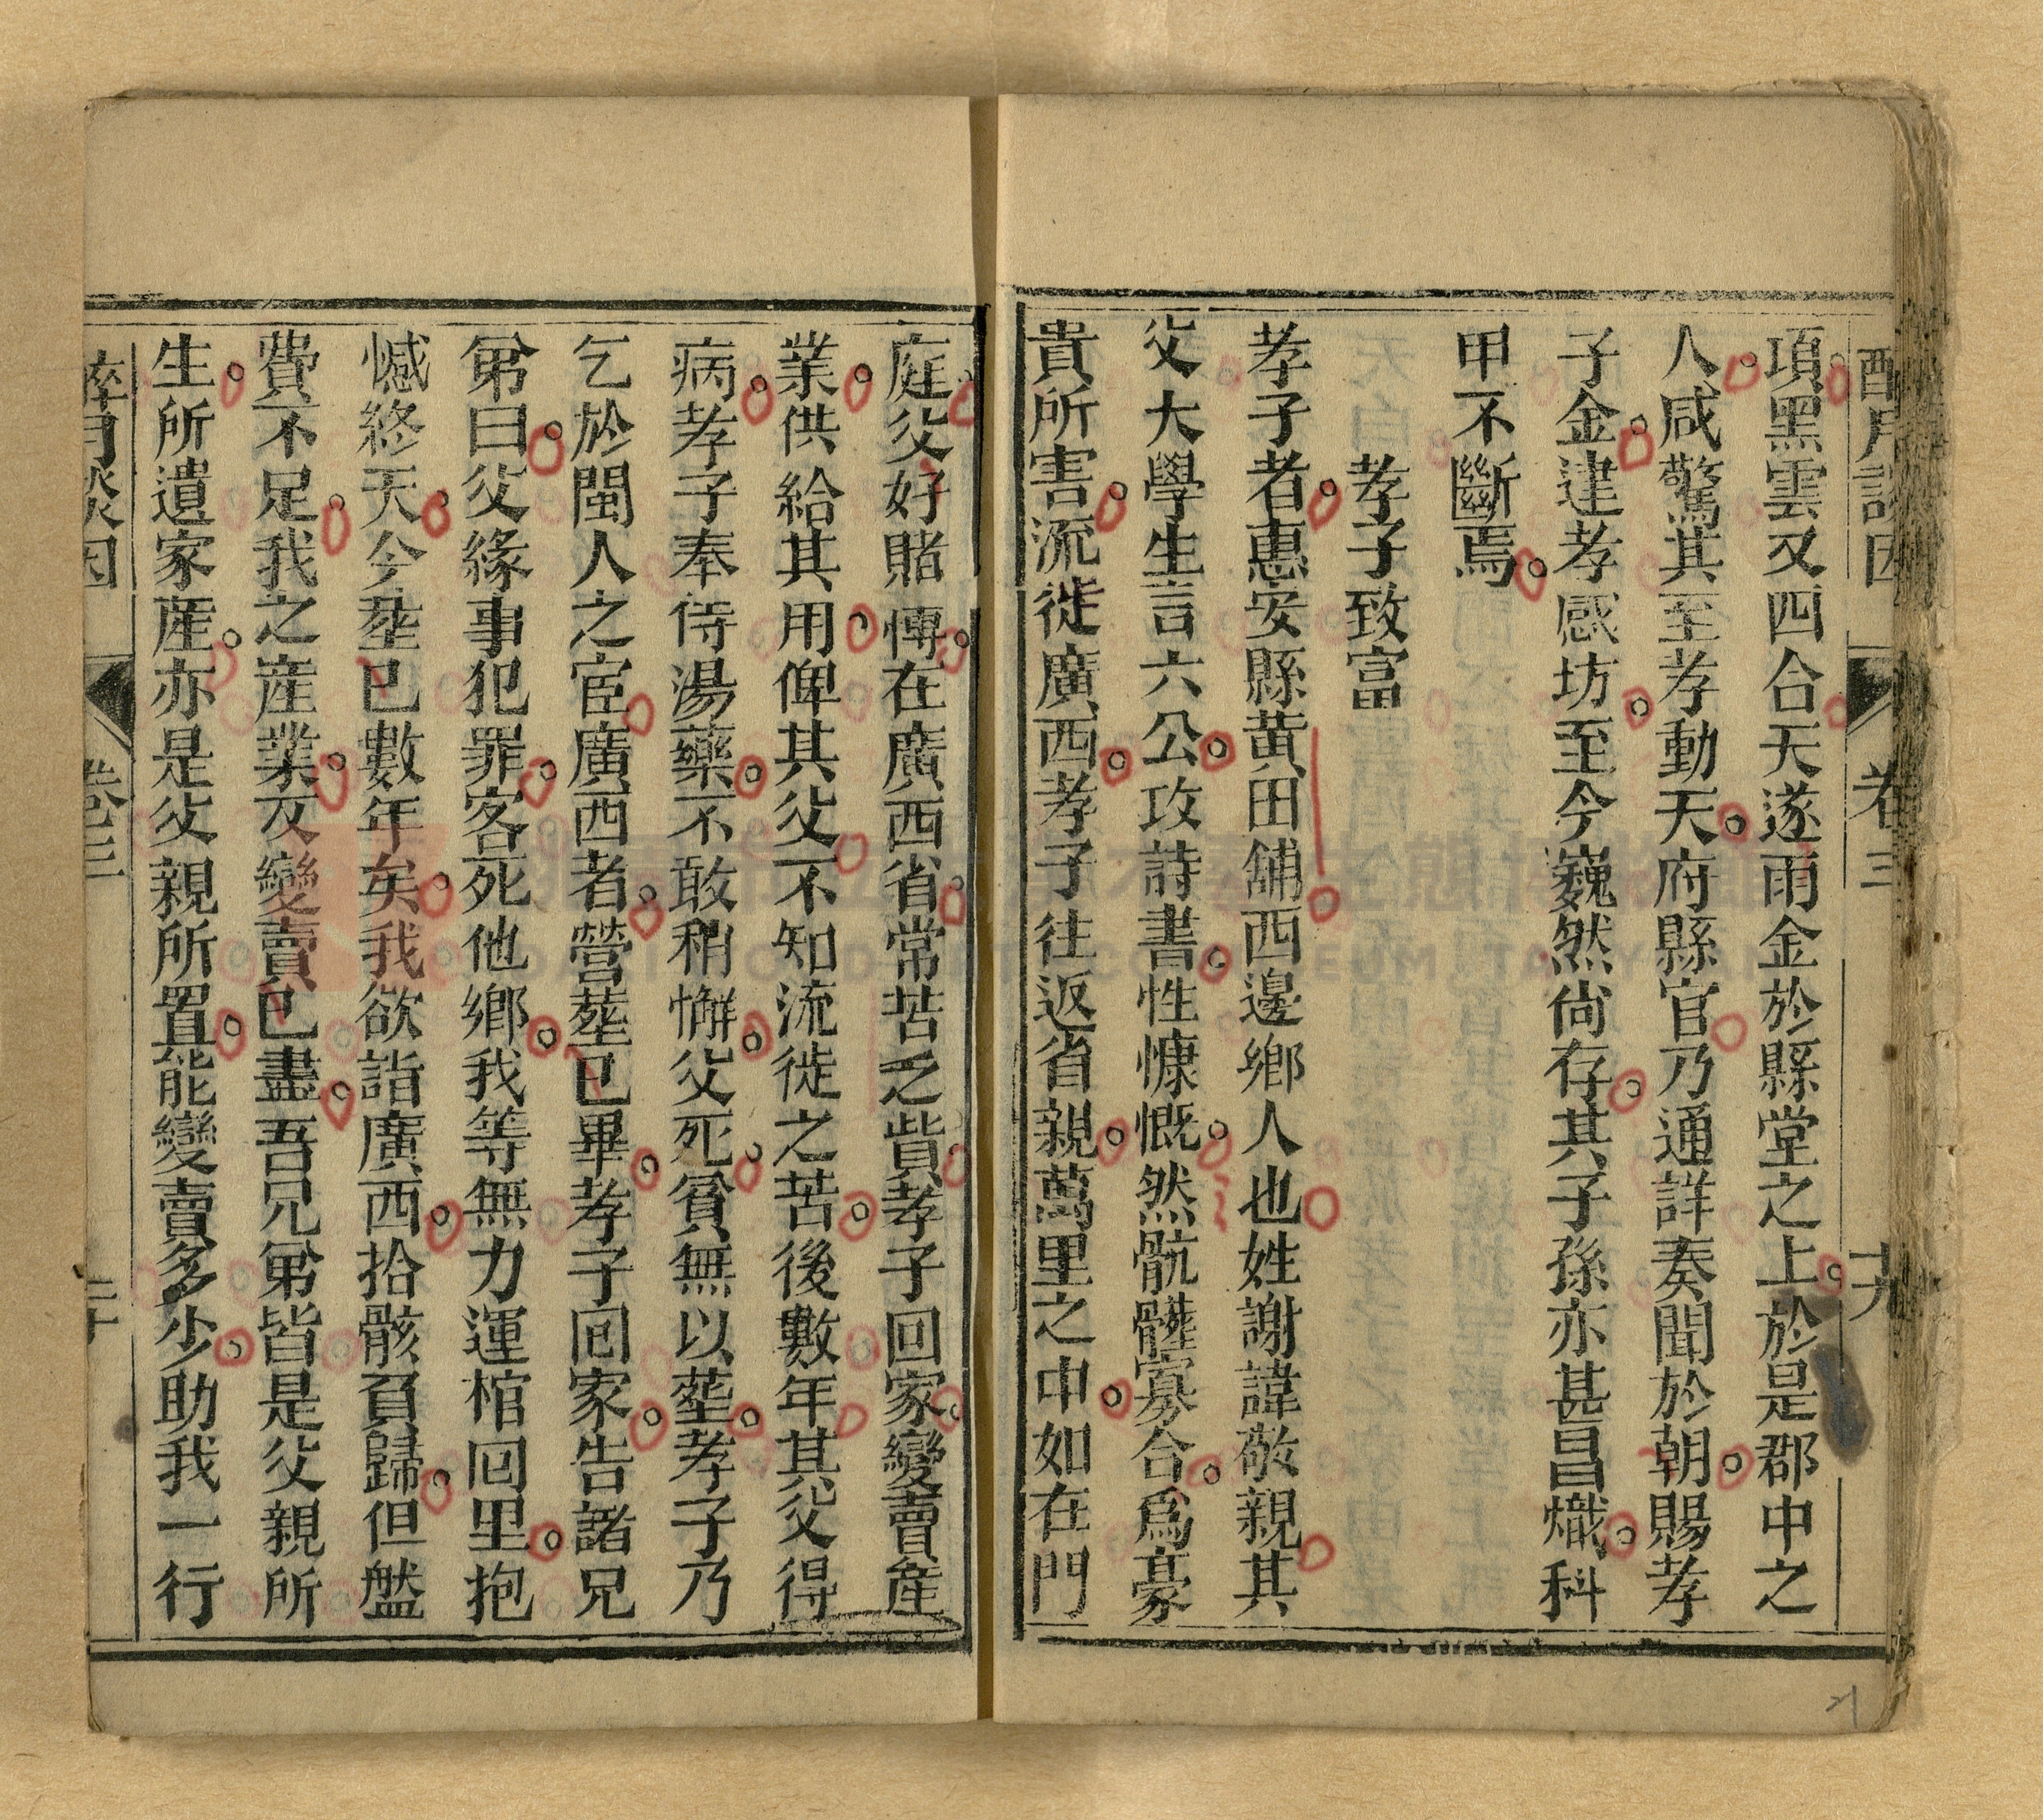 醉月談因 卷三 十九
項黑雲又四合天遂雨金於縣堂之上於是郡中之
人咸驚其至孝動天府縣官乃通詳奏聞於朝賜孝
子金建孝感坊至今巍然尚存其子孫亦甚昌熾科
甲不斷焉
孝子致富
孝子者惠安縣黃田舖西邊鄉人也姓謝諱敬親其
父大學生言六公攻詩書性慷慨然骯髒寡合爲豪
貴所害流徙廣西孝子往返省親萬里之中如在門
庭父好賭慱在廣西省常苦乏貲孝子回家變賣産
業供給其用俾其父不知流徙之苦後數年其父得
病孝子奉侍湯藥不敢稍懈父死貧無以塟孝子乃
乞於閩人之宦廣西者營塟已畢孝子囘家告諸兄
弟曰父緣事犯罪客死他鄉我等無力運棺囘里抱
憾終天今塟已數年矣我欲詣廣西拾骸負歸但盤
費不足我之産業及變賣已盡吾兄弟皆是父親所
生所遺家産亦是父親所置能變賣多少助我一行
醉月談因 卷三 二十